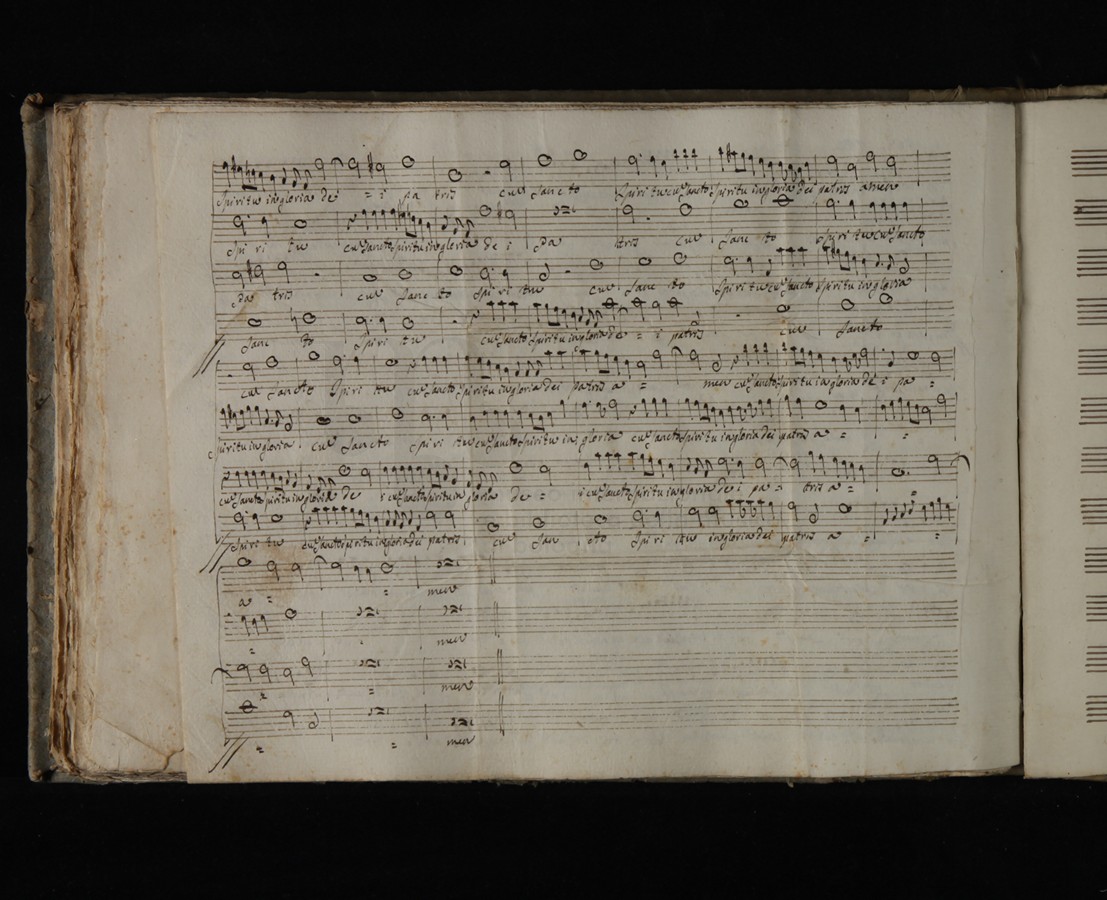 Spiritu in gloria de = i pa tris cū Sancto Spiritu cū Sancto Spiritu in gloria dei patris amen
Spi ri tu cū Sancto Spiritu in gloria de i Pa tris cū Sanc to Spi ri tu cū Sancto
Pa tris cū Sanc to Spi ri tu cū Sanc to Spiritu cū Sancto Spiritu in gloria
Sanc to Spi ri tu cū Sancto Spiritu in gloria de = i patris cū Sancto
cū Sancto Spiri tu cū Sancto Spiritu in gloria dei patris a = men cū Sancto Spiritu in gloria de i pa =
Spiritu in gloria cū Sancto Spi ri tu cū Sancto Spiritu in gloria cū Sancto Spiritu in gloria dei patris a = =
cū Sancto Spiritu in gloria de i cū Sancto Spiritu in gloria de = i cū Sancto Spiritu in gloria de i pa = tris a = =
Spiri tu cū Sancto Spiritu in gloria dei patris cū San cto Spi ri tu in gloria dei patris a = =
a = = men
= men
= men
= = men